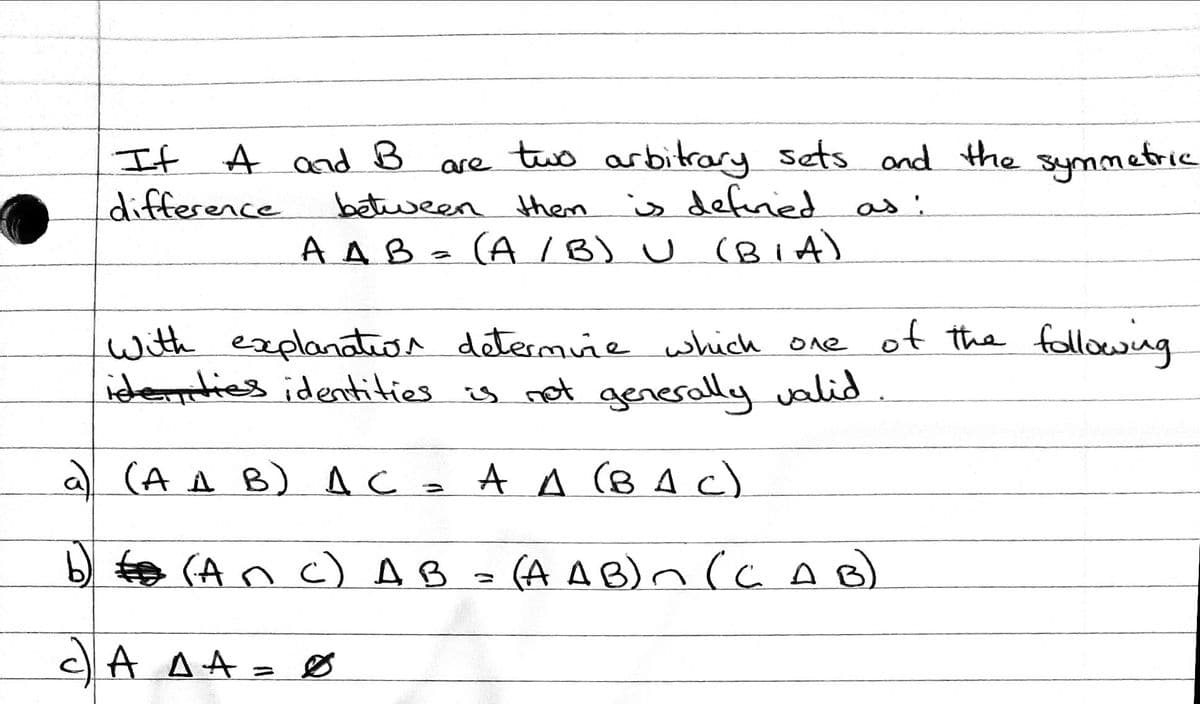 If A and B are two arbitrary sets and the symmetric
difference between them is defined as :
A Δ B = (A / B) ∪ (B / A)
With explanation determine which one of the following
identities identities is not generally valid.
a) (A Δ B) Δ C = A Δ (B Δ C)
b) (A ∩ C) Δ B = (A Δ B) ∩ (C Δ B)
c) A Δ A = ∅